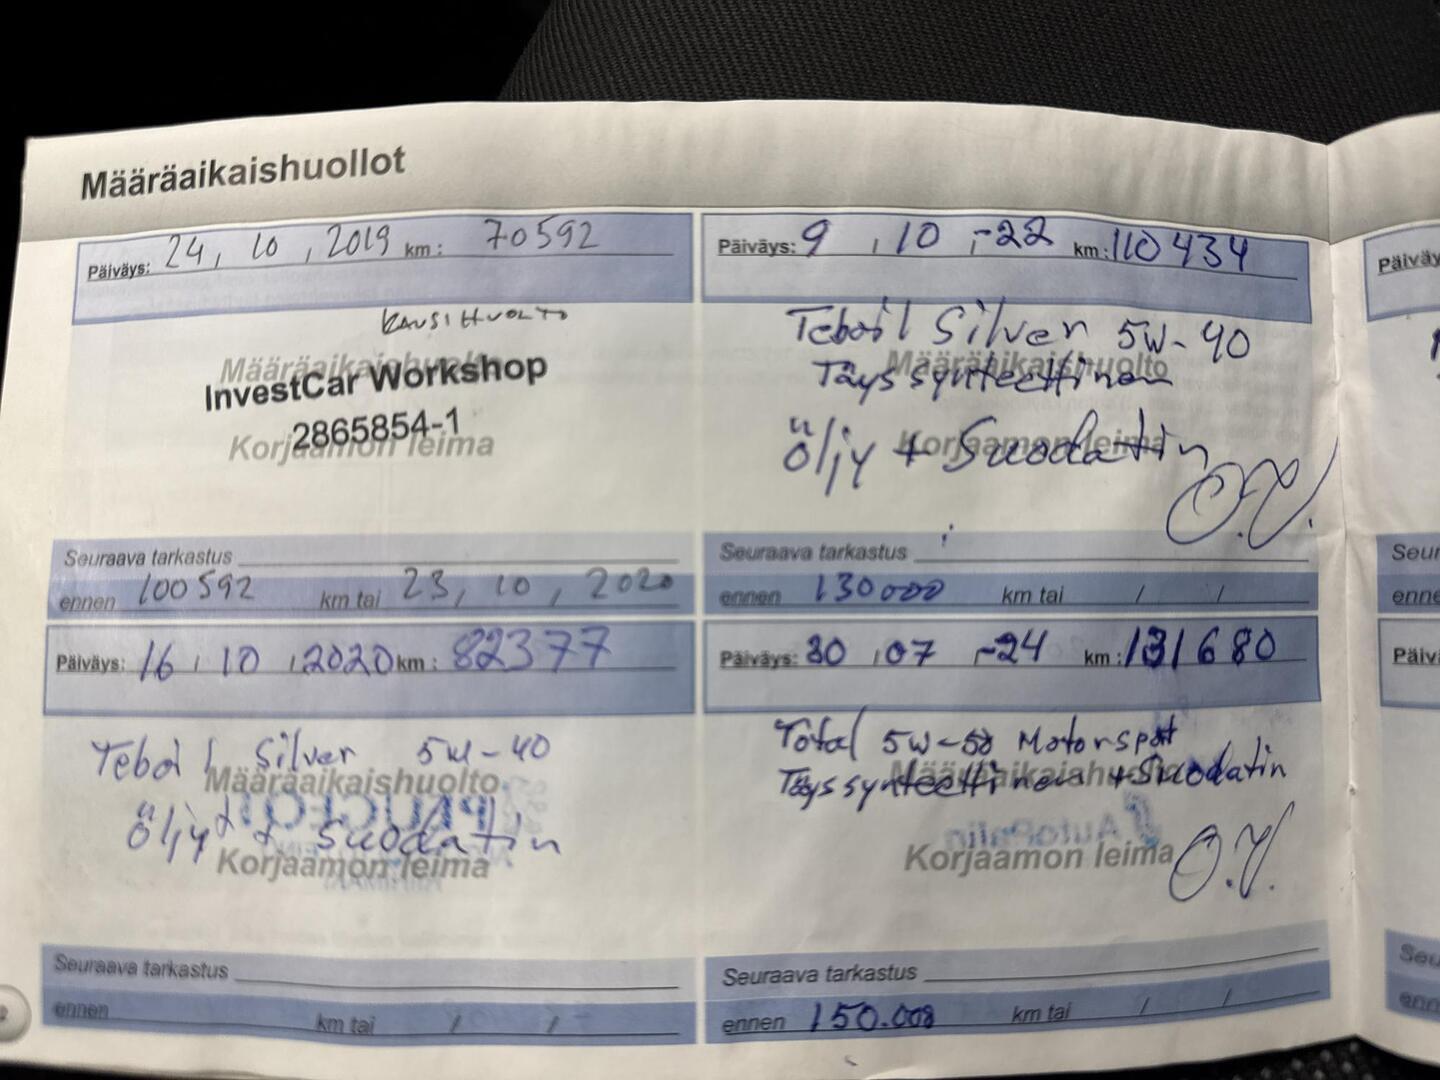 Määräaikaishuollot
Päiväys: 24, 10, 2019 km: 70592
KAUSIHUOLTO
Määräaikaishuolto
InvestCar Workshop
2865854-1
Korjaamon leima
Seuraava tarkastus
ennen 100592 km tai 23, 10, 2020
Päiväys: 16, 10, 2020 km: 82377
Teboil Silver 5W-40
Määräaikaishuolto
Öljyt + Suodatin
Korjaamon leima
Seuraava tarkastus
ennen km tai / /
Päiväys: 9, 10, -22 km: 110434
Teboil Silver 5W-40
Määräaikaishuolto
Täyssynteettinen
Öljy + Suodatin
Korjaamon leima
Seuraava tarkastus
ennen 130000 km tai / /
Päiväys: 30, 07, -24 km: 131680
Total 5W-50 Motorsport
Täyssynteettinen + Suodatin
Määräaikaishuolto
Korjaamon leima
Seuraava tarkastus
ennen 150.000 km tai / /
Päiväy
Seur
enne
Päiv
Seu
enn